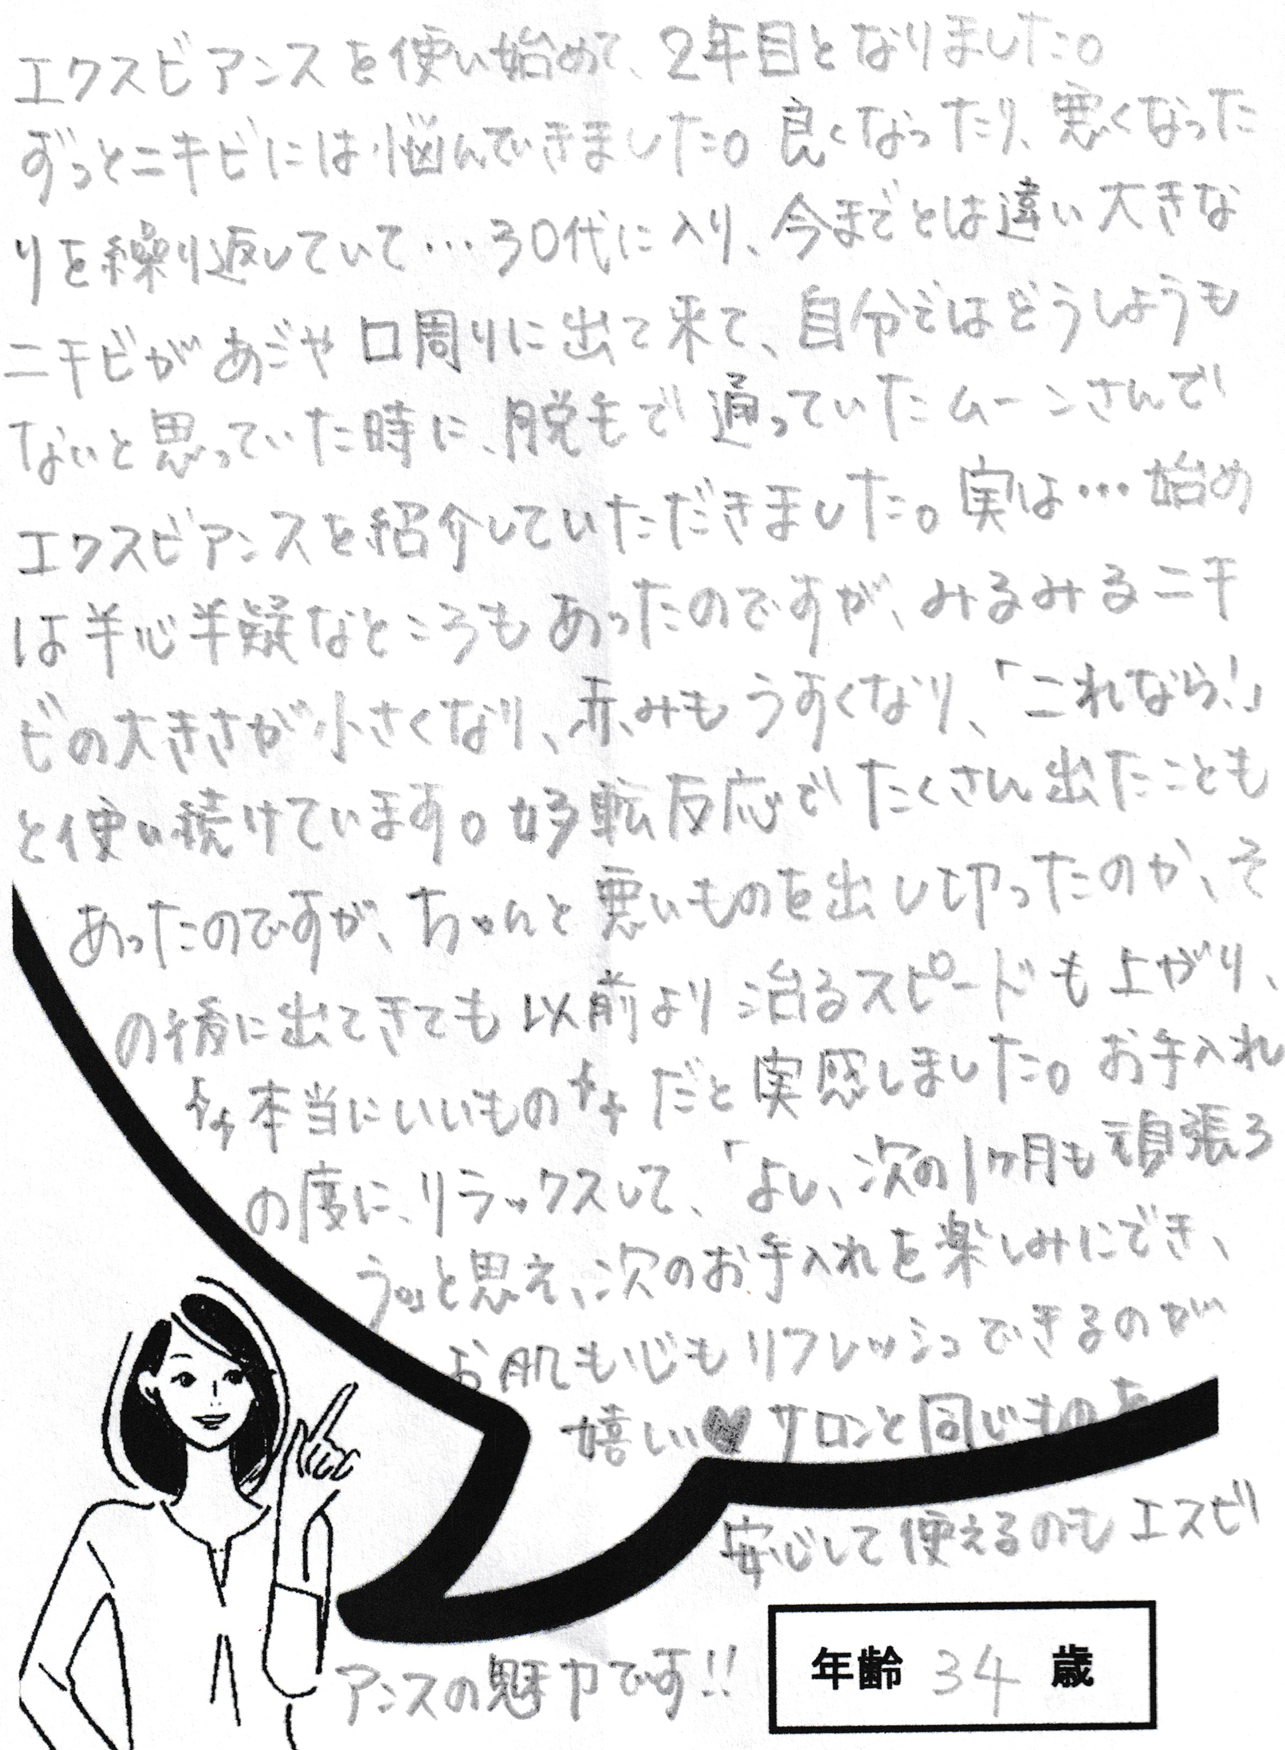 エクスビアンスを使い始めて、2年目となりました。
ずっとニキビには悩んできました。良くなったり、悪くなった
りを繰り返していて…30代に入り、今までとは違い大きな
ニキビがあごや口周りに出て来て、自分ではどうしようも
ないと思っていた時に、脱毛で通っていたムーンさんで
エクスビアンスを紹介していただきました。実は…始め
は半心半疑なところもあったのですが、みるみるニキ
ビの大きさが小さくなり、赤みもうすくなり、「これなら!」
と使い続けています。好転反応でたくさん出たことも
あったのですが、ちゃんと悪いものを出し切ったのか、そ
の後に出てきても以前より治るスピードも上がり、
本当にいいものだと実感しました。お手入れ
の度に、リラックスして、「よし、次の1ヶ月も頑張ろ
う」と思え、次のお手入れを楽しみにでき、
お肌も心もリフレッシュできるのが
嬉しい♥サロンと同じものを
安心して使えるのもエスビ
アンスの魅力です!!
年齢 34 歳